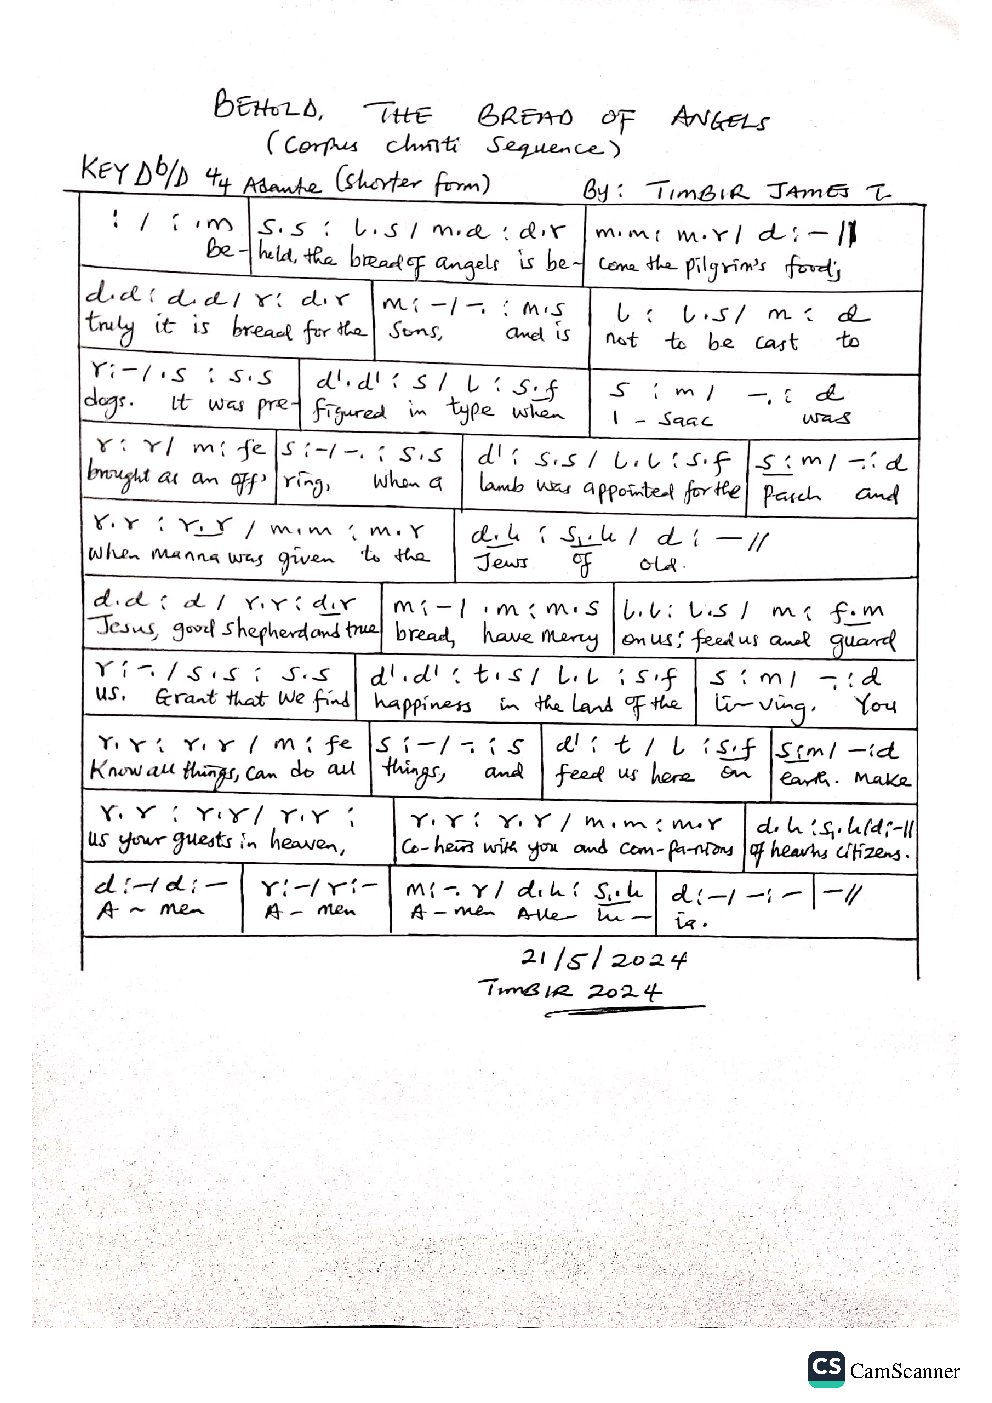 BEHOLD, THE BREAD OF ANGELS
(Corpus Christi Sequence)
KEY Db/D 4/4 Adante (Shorter form) By: TIMBIR JAMES T
: / : .m | s.s : l.s / m.d : d.r | m.m : m.r / d : - //
be- | held, the bread of angels is be- | come the pilgrim's food;
d.d : d.d / r : d.r | m : - / - . : m.s | l : l.s / m : d
truly it is bread for the | Sons, and is | not to be cast to
r : - / . s : s.s | d'.d' : s / l : s.f | s : m / - . : d
dogs. It was pre- | figured in type when | I - saac was
r : r / m : fe | s : - / - . : s.s | d' : s.s / l.l : s.f | s : m / - . : d
brought as an off' | ring, when a | lamb was appointed for the | Pasch and
r.r : r.r / m.m : m.r | d.l, : s,.l, / d : - //
when manna was given to the | Jews of old.
d.d : d / r.r : d.r | m : - / .m : m.s | l.l : l.s / m : f.m
Jesus, good shepherd and true | bread, have mercy | on us; feed us and guard
r : - . / s.s : s.s | d'.d' : t.s / l.l : s.f | s : m / - . : d
us. Grant that we find | happiness in the land of the | li-ving. You
r.r : r.r / m : fe | s : - / - . : s | d' : t / l : s.f | s : m / - : d
Know all things, can do all | things, and | feed us here on | earth. Make
r.r : r.r / r.r : | r.r : r.r / m.m : m.r | d.l, : s,.l, / d : - //
us your guests in heaven, | Co-heirs with you and com-panions | of heav'ns citizens.
d : - / d : - | r : - / r : - | m : - . r / d.l, : s,.l, | d : - / - : - | - //
A - men | A - men | A - men Alle- lu - | ia.
21/5/2024
TIMBIR 2024
CS CamScanner